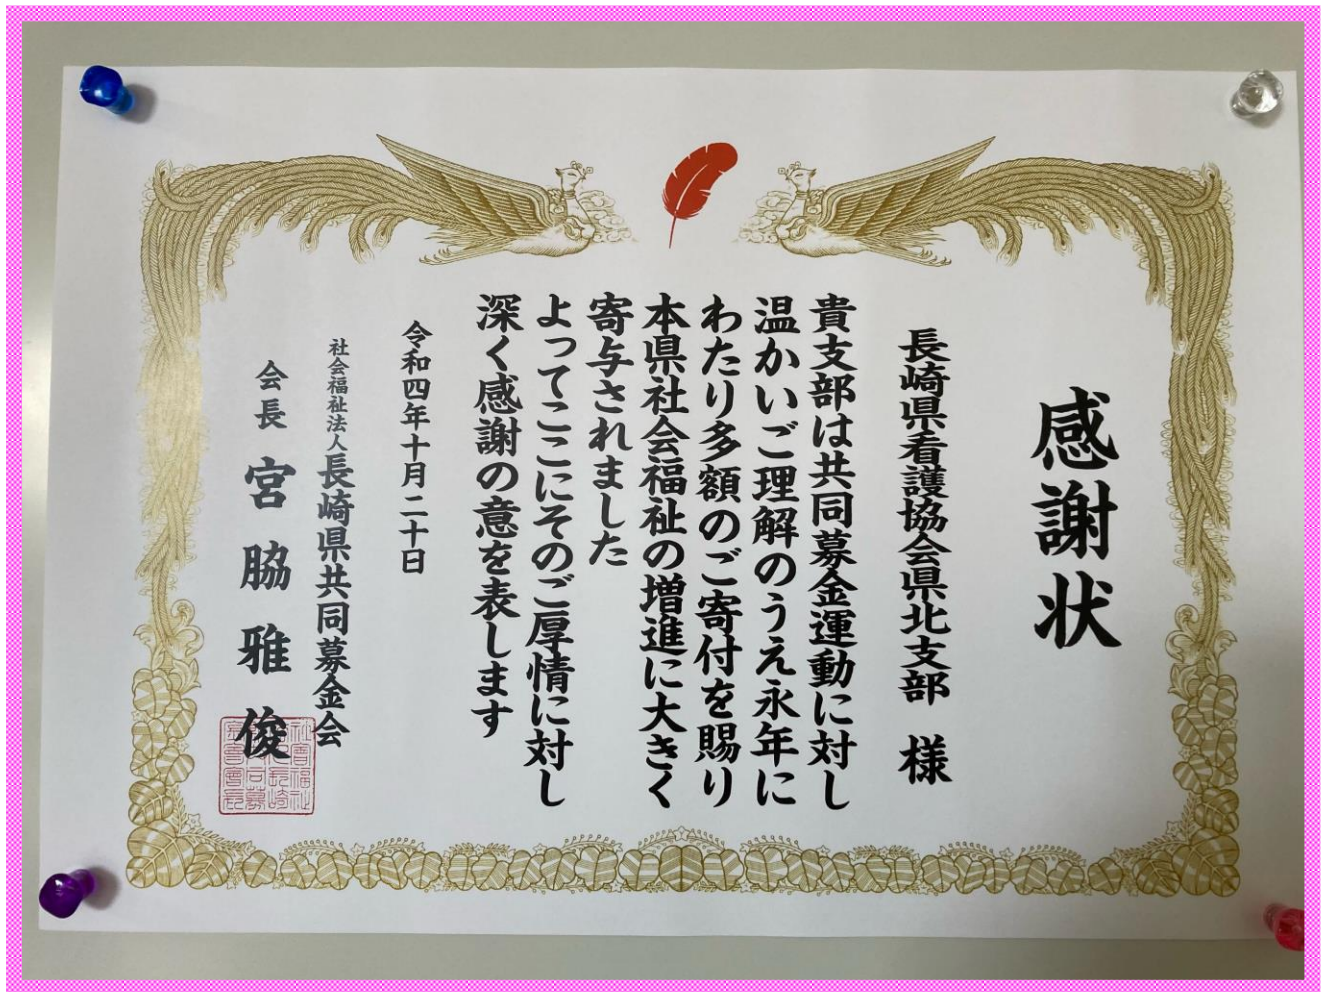 感謝状
長崎県看護協会県北支部 様
貴支部は共同募金運動に対し
温かいご理解のうえ永年に
わたり多額のご寄付を賜り
本県社会福祉の増進に大きく
寄与されました
よってここにそのご厚情に対し
深く感謝の意を表します
令和四年十月二十日
社会福祉法人長崎県共同募金会
会長 宮脇雅俊